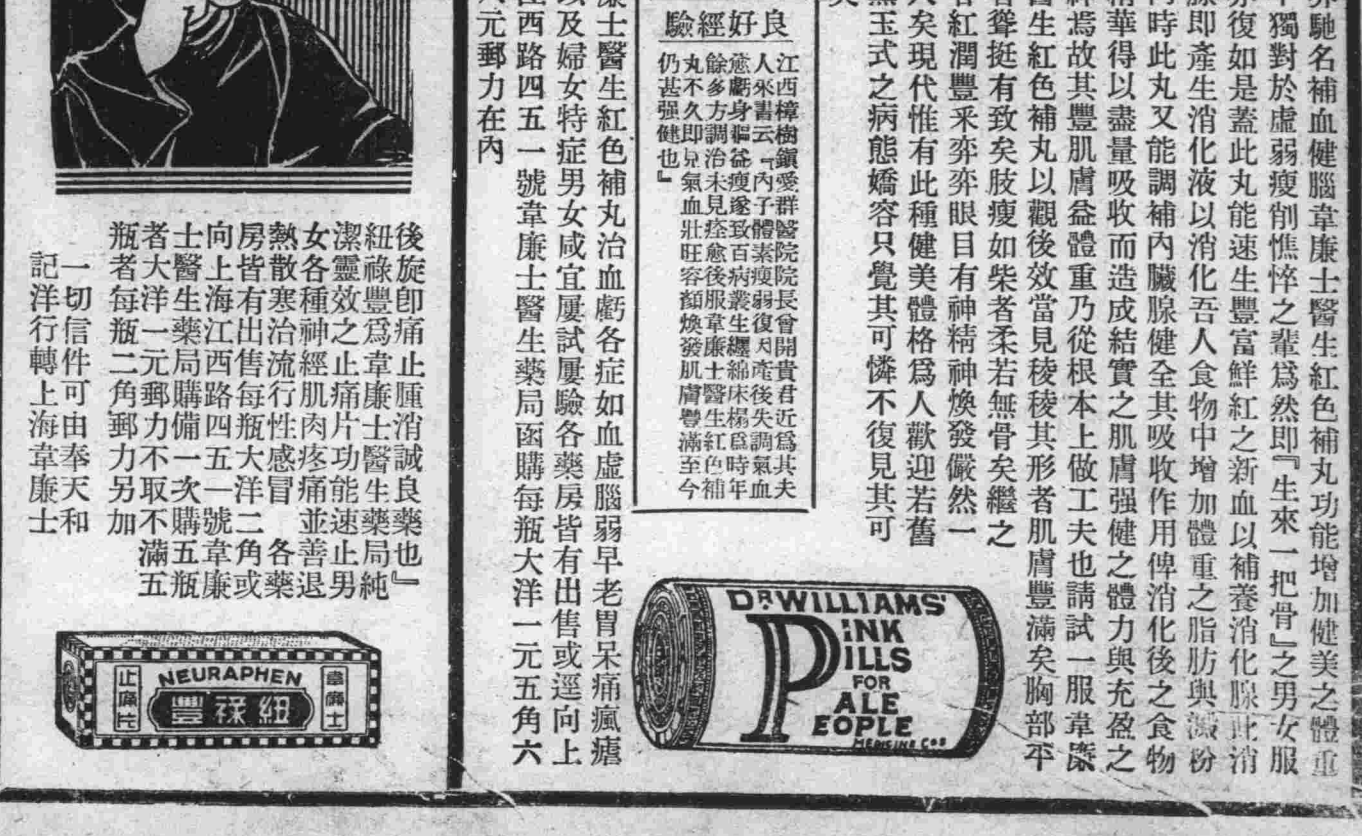 馳名補血健腦韋廉士醫生紅色補丸功能增加健美之體重
獨對於虛弱瘦削憔悴之輩爲然即『生來一把骨』之男女服
復如是蓋此丸能速生豐富鮮紅之新血以補養消化腺此消
腺即產生消化液以消化吾人食物中增加體重之脂肪與澱粉
同時此丸又能調補內臟腺健全其吸收作用俾消化後之食物
精華得以盡量吸收而造成結實之肌膚强健之體力與充盈之
焉故其豐肌膚益體重乃從根本上做工夫也請試一服韋廉
醫生紅色補丸以觀後效當見稜稜其形者肌膚豐滿矣胸部平
者聳挺有致矣肢瘦如柴者柔若無骨矣繼之
紅潤豐釆弈弈眼目有神精神煥發儼然一
人矣現代惟有此種健美體格爲人歡迎若舊
黛玉式之病態嬌容只覺其可憐不復見其可
良好經驗
江西樟樹鎭愛群醫院院長曾開貴君近爲其夫
人來書云『內子體素瘦弱復因產後失調氣血
愈虧身軀益瘦遂致百病叢生纒綿床榻爲時年
餘多方調治未見痊愈後服韋廉士醫生紅色補
丸不久即見氣血壯旺容顏煥發肌膚豐滿至今
仍甚强健也』
廉士醫生紅色補丸治血虧各症如血虛腦弱早老胃呆痛瘋瘧
以及婦女特症男女咸宜屢試屢驗各藥房皆有出售或逕向上
江西路四五一號韋廉士醫生藥局函購每瓶大洋一元五角六
元郵力在內
DR WILLIAMS'
PINK
PILLS
FOR
PALE
PEOPLE
MEDICINE COS
後旋卽痛止腫消誠良藥也』
紐祿豐爲韋廉士醫生藥局純
潔靈效之止痛片功能速止男
女各種神經肌肉疼痛並善退
熱散寒治流行性感冒 各藥
房皆有出售每瓶大洋二角或
向上海江西路四五一號韋廉
士醫生藥局購備一次購五瓶
者大洋一元郵力不取不滿五
瓶者每瓶二角郵力另加
一切信件可由奉天和
記洋行轉上海韋廉士
NEURAPHEN
韋廉士
紐祿豐
止痛片